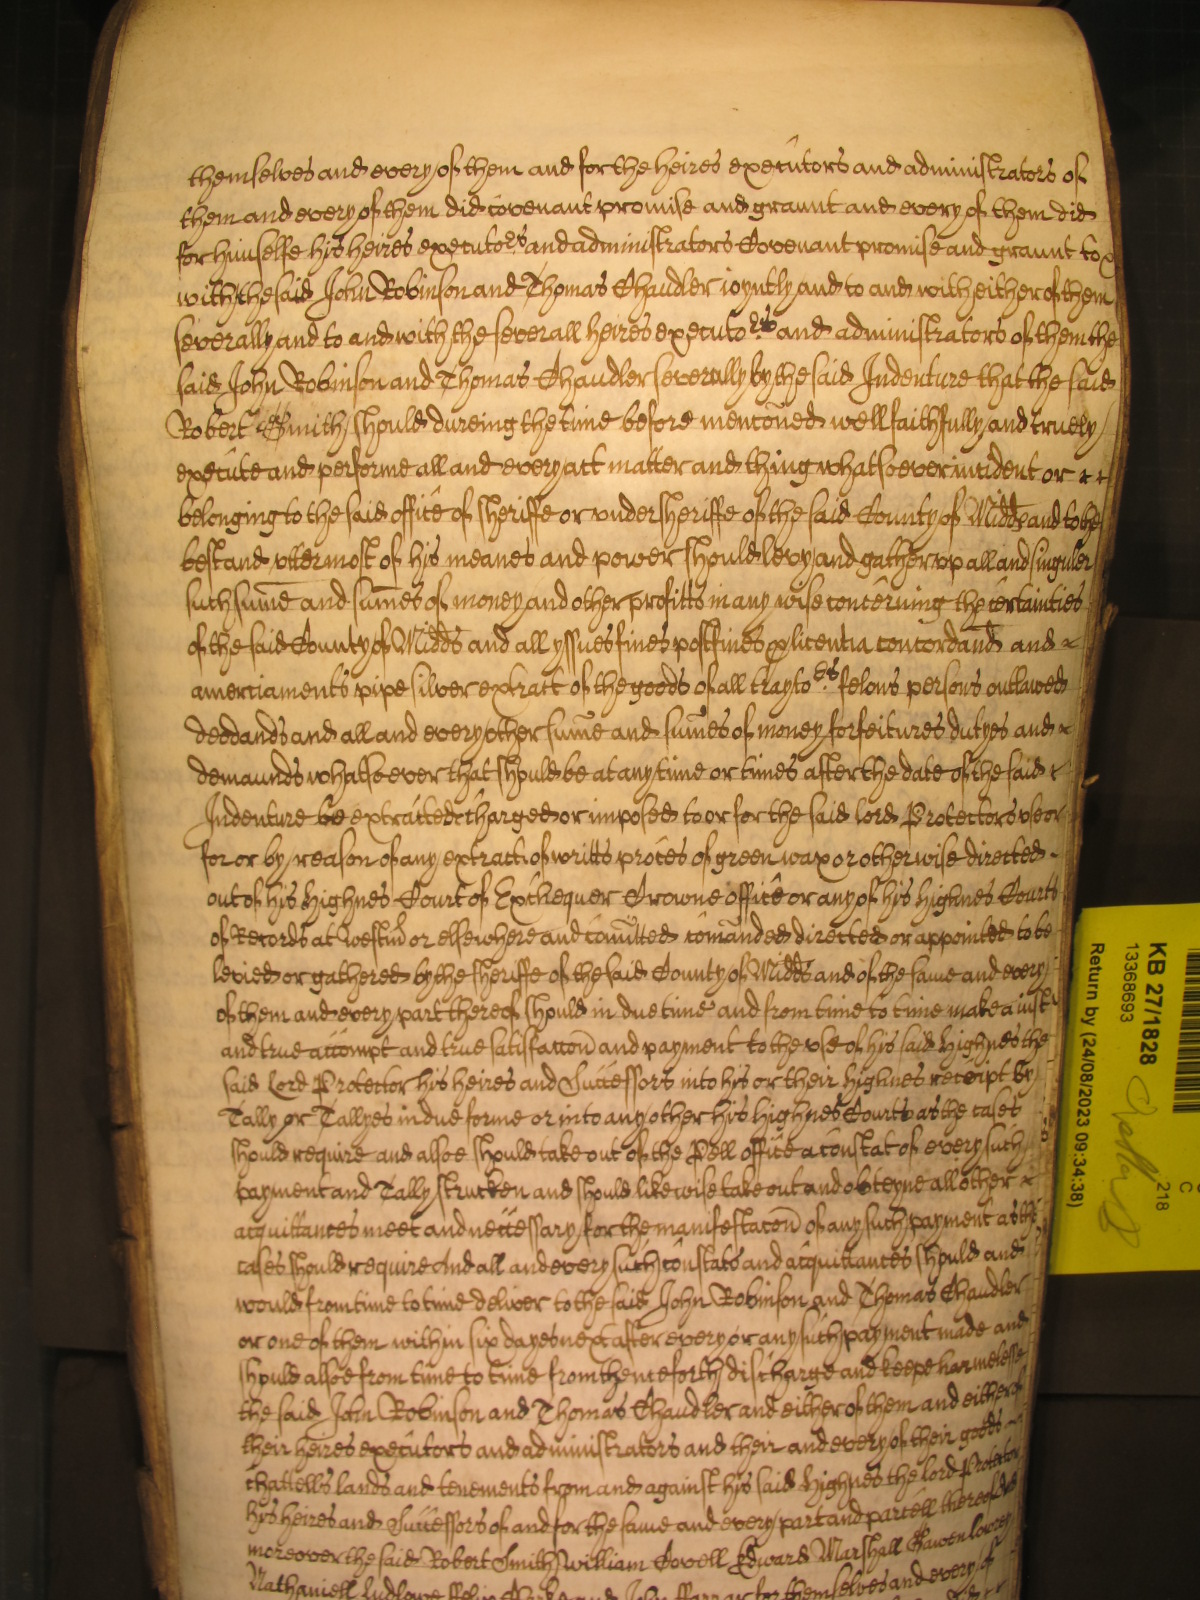 themselves and every of them and for the heires executors and administrators of
them and every of them did covenant promise and graunt and every of them did
for himselfe his heires executors and administrators Covenant promise and graunt to
with the said John Robinson and Thomas Chaudler ioyntly and to and with either of them
severally and to and with the severall heires executors and administrators of them the
said John Robinson and Thomas Chaudler severally by the said Indenture that the said
Robert Smith should dureing the time before mencõned well faithfully and truely
execute and performe all and every act matter and thing whatsoever incident or
belonging to the said office of Sheriffe or undersheriffe of the said County of Midds and to the
best and vttermost of his meanes and power should levy and gather vp all and singuler
such sum̃e and sum̃es of money and other profitts in any wise concerning the certainties
of the said County of Midds and all yssues fines postfines p licentia concordand and
amerciaments pipe silver extract of the goods of all traytors felons persons outlawed
deodands and all and every other sum̃e and sum̃es of money forfeitures dutyes and
demaunds whatsoever that should be at any time or times after the date of the said
Indenture be extracted charged or imposed to or for the said lord Protectors vse or
for or by reason of any extract of writts proces of green wax or otherwise directed
out of his Highnes Court of Exchequer Crowne office or any of his Highnes Courts
of Records at Westm̃ or elsewhere and com̃itted com̃anded directed or appointed to be
levied or gathered by the Sheriffe of the said County of Midds and of the same and every
of them and every part thereof should in due time and from time to time make a iust
and true accompt and true satisfaccõn and payment to the vse of his said Highnes the
said Lord Protector his heires and Successors into his or their Highnes receipt by
Tally or Tallyes in due forme or into any other his Highnes Courts as the cases
should require and alsoe should take out of the Pell office a constat of every such
payment and Tally strucken and should likewise take out and obteyne all other
acquittances meet and necessary for the manifestacõn of any such payment as the
cases should require And all and every such constats and acquittances should and
would from time to time deliver to the said John Robinson and Thomas Chaudler
or one of them within six dayes next after every or any such payment made and
should alsoe from time to time from thenceforth discharge and keepe harmelesse
the said John Robinson and Thomas Chaudler and either of them and either of
their heires executors and administrators and their and every of their goods
chattells lands and tenements from and against his said Highnes the lord Protector
his heires and Successors of and for the same and every part and parcell thereof And
moreover the said Robert Smith William Covell Edward Marshall Gawen Lowrey
Nathaniell Ludlowe and John ffarrar for themselves and every of
KB 27/1828
13368693
Return by (24/08/2023 09:34:38)
218
C